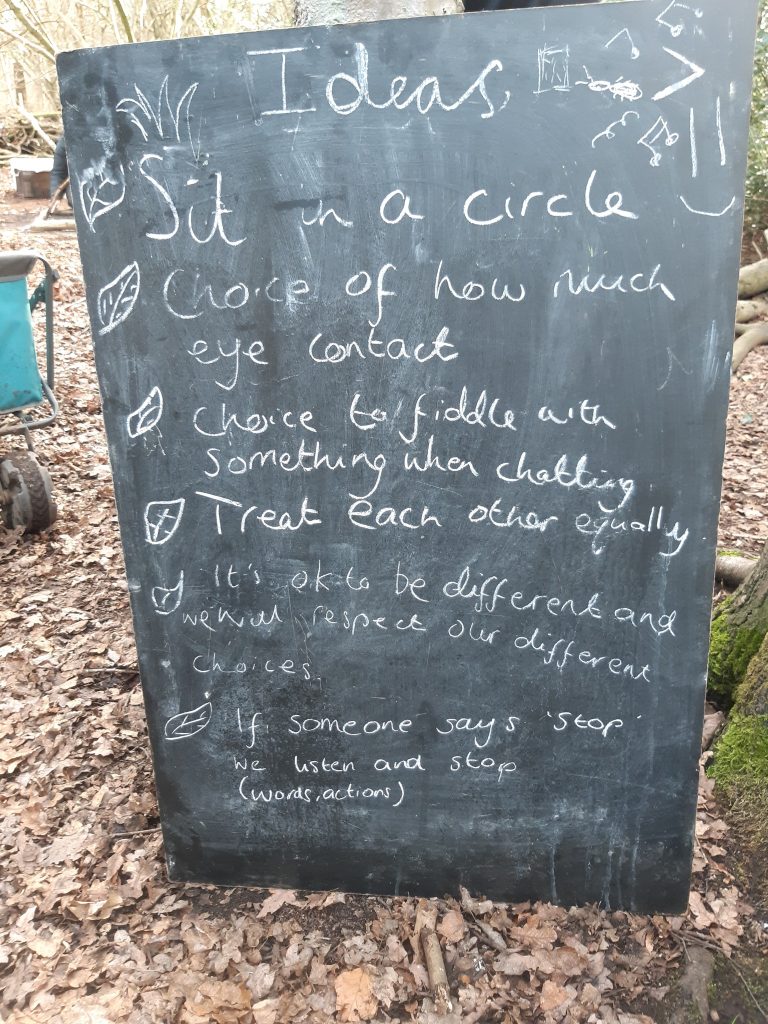 Ideas
Sit in a circle
Choice of how much
eye contact
choice to fiddle with
something when chatting
Treat each other equally
It's ok to be different and
we will respect our different
choices.
If someone says 'stop'
we listen and stop
(words, actions)